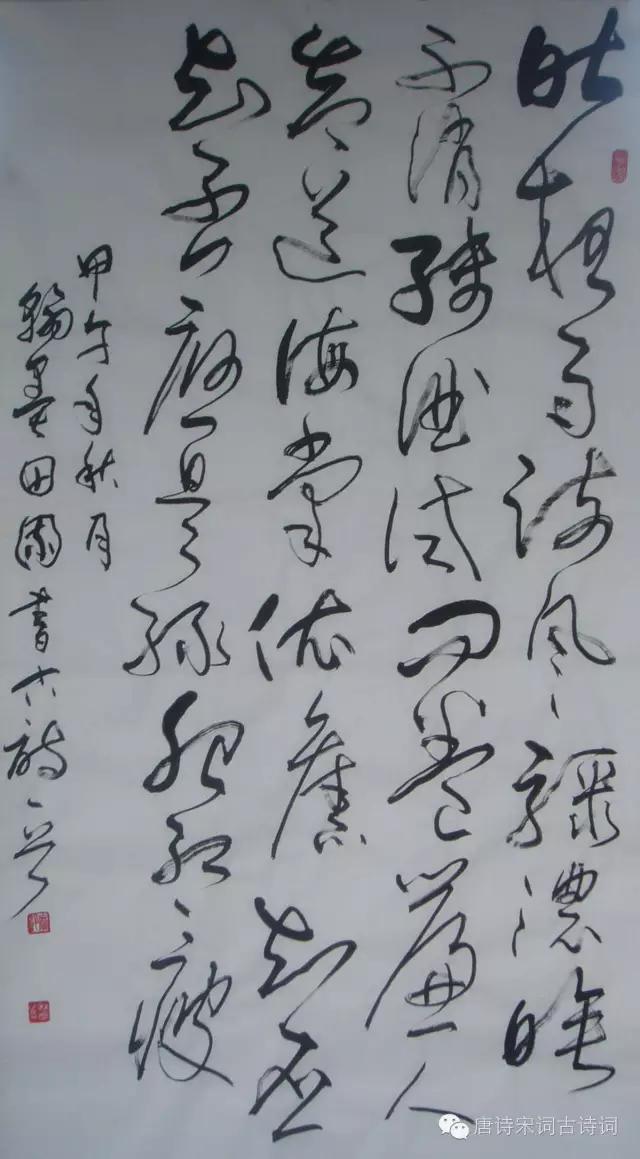 昨夜雨疏风骤濃睡
不消残酒试问卷簾人
却道海棠依舊知否
知否應是绿肥红瘦
甲午年秋月
翰墨田園書古詩一首
唐诗宋词古诗词